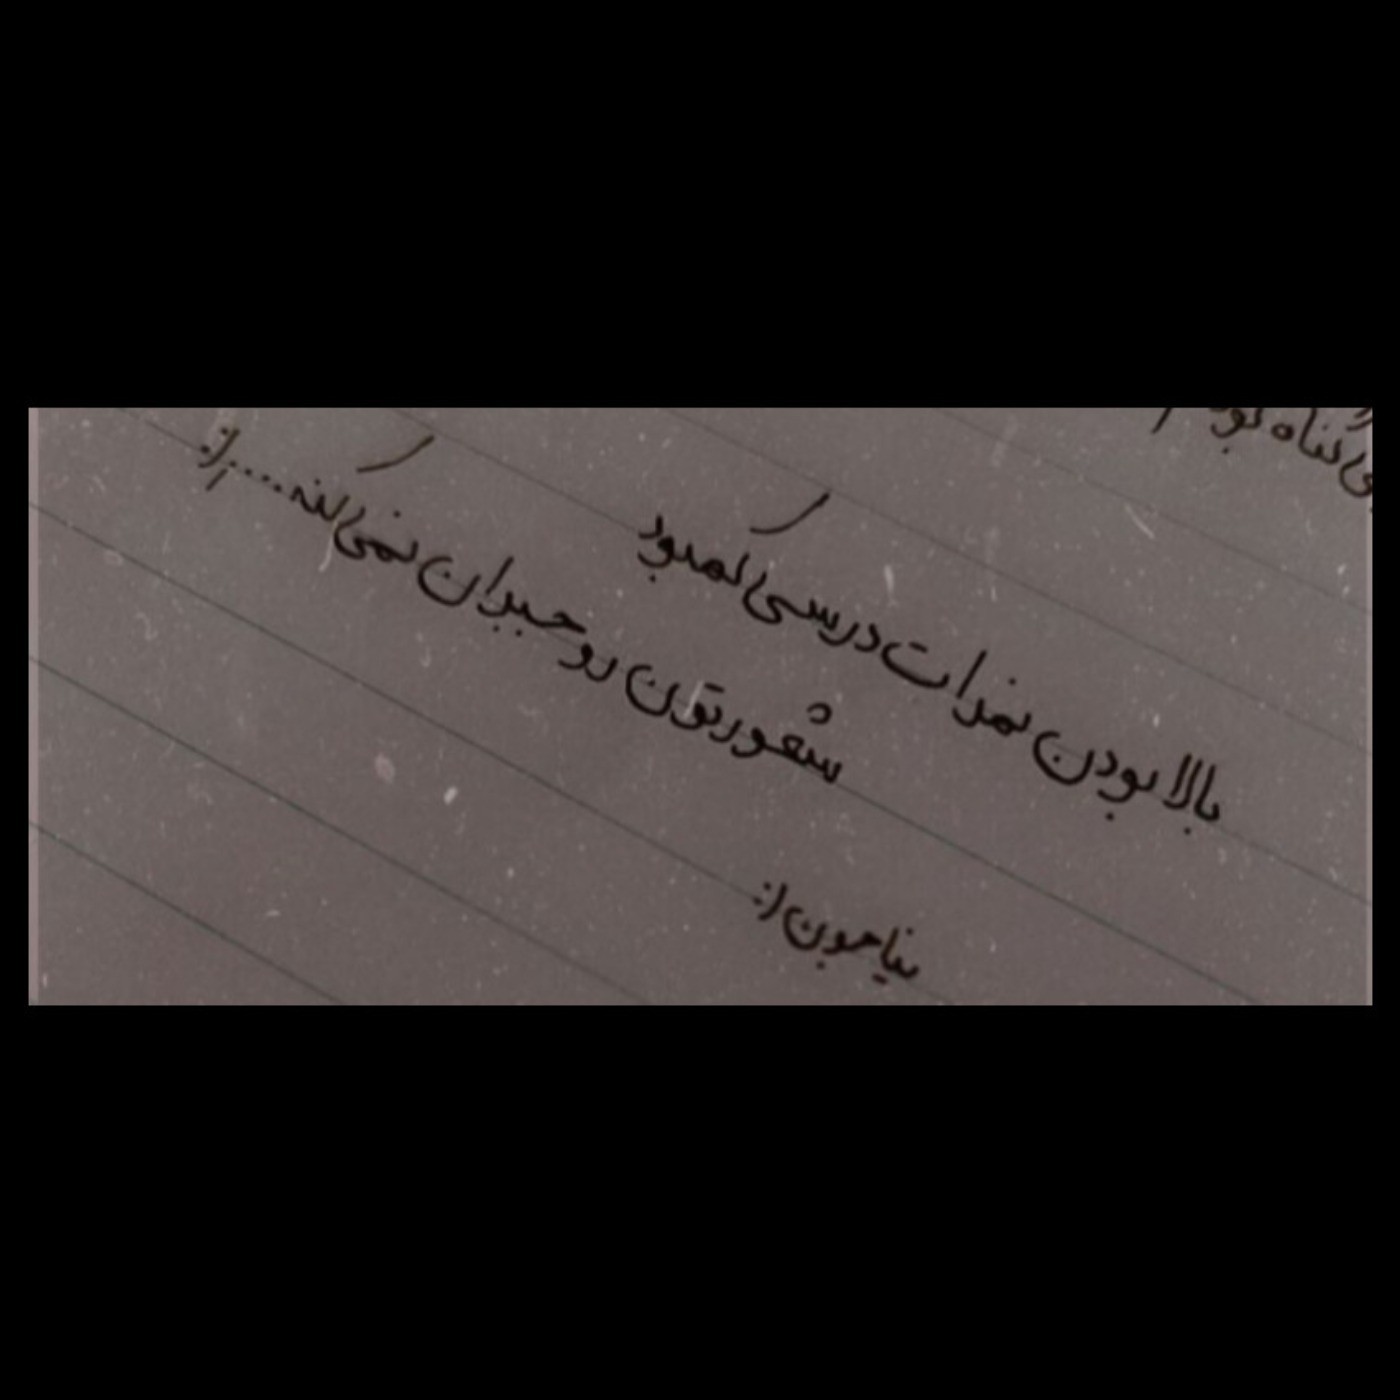 بی گناه بود
بالا بودن نمرات درسی کمبود
شعورتون رو جبران نمی کنه.....!:
بنیاجون!: